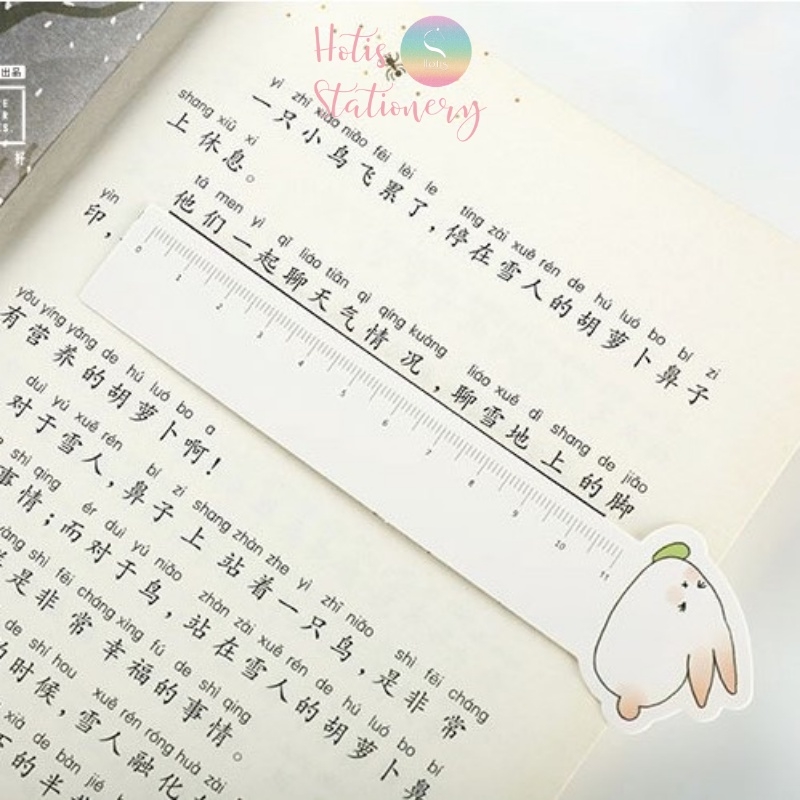 Hotis
Stationery
出品
yì zhī xiǎo niǎo fēi lèi le tíng zài xuě rén de hú luó bo bí zi
一只小鸟飞累了，停在雪人的胡萝卜鼻子
shang xiū xi
上休息。
tā men yì qǐ liáo tiān qì qíng kuàng liáo xuě dì shang de jiǎo
他们一起聊天气情况，聊雪地上的脚
yìn
印，
0 1 2 3 4 5 6 7 8 9 10 11
yǒu yíng yǎng de hú luó bo a
有营养的胡萝卜啊！
duì yú xuě rén bí zi shang zhàn zhe yì zhī niǎo shì fēi cháng
对于雪人，鼻子上站着一只鸟，是非常
shì qing ér duì yú niǎo zhàn zài xuě rén de hú luó bo bí
事情；而对于鸟，站在雪人的胡萝卜鼻
yàng shì fēi cháng xìng fú de shì qing
样是非常幸福的事情。
de shí hou xuě rén róng huà zài
的时候，雪人融化在
xià de bàn jié
下的半截